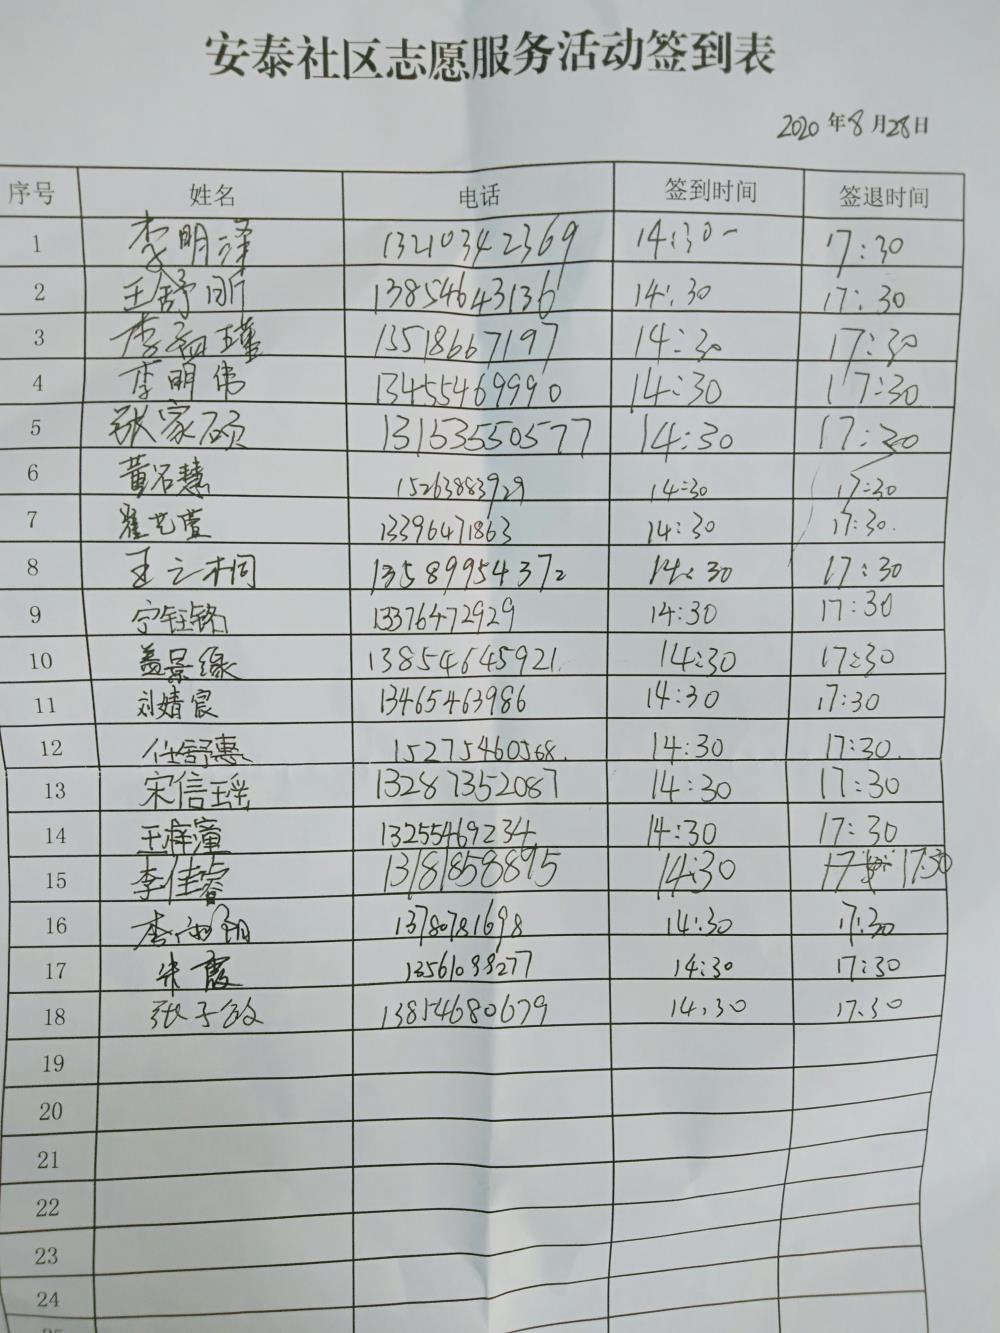 安泰社区志愿服务活动签到表
2020年8月28日
序号 姓名 电话 签到时间 签退时间
1 李明泽 13210342369 14:30- 17:30
2 王舒昕 13854643136 14:30 17:30
3 李 瑾 15518667197 14:30 17:30
4 李明伟 13455469990 14:30 17:30
5 张家硕 13153550577 14:30 17:30
6 黄名慧 15263883929 14:30 17:30
7 崔艺萱 13396471863 14:30 17:30
8 王之桐 13589954372 14:30 17:30
9 宁钰铭 13376472929 14:30 17:30
10 盖景缘 13854645921 14:30 17:30
11 刘婧宸 13465463986 14:30 17:30
12 任舒惠 15275460568 14:30 17:30
13 宋信瑶 13287352087 14:30 17:30
14 王梓 13255469234 14:30 17:30
15 李佳睿 13181858895 14:30 17:30
16 李雨玥 13780781698 14:30 17:30
17 朱霞 13561098277 14:30 17:30
18 张子 13854680679 14:30 17:30
19
20
21
22
23
24
25